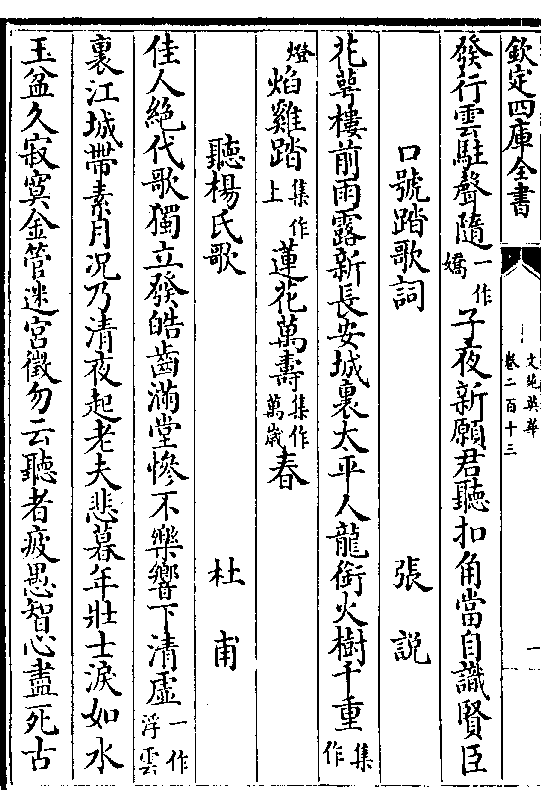 欽定四庫全書
文苑英華
卷二百十三
一
發行雲駐聲隨一作嬌子夜新願君聽扣角當自識賢臣
口號踏歌詞 張説
花萼樓前雨露新長安城裏太平人龍銜火樹千重集作
燈焰雞踏集作上蓮花萬壽集作萬歲春
聽楊氏歌 杜甫
佳人絶代歌獨立發皓齒滿堂慘不樂響下清虛一作浮雲
裏江城帶素月况乃清夜起老夫悲暮年壯士淚如水
玉盆久寂寞金管迷宮徵勿云聽者疲愚智心盡死古